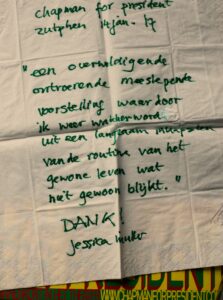 chapman for president
zutphen 14 jan. 17
"een overweldigende
ontroerende meeslepende
voorstelling waar door
ik weer wakker word
uit een langzaam
van de routine van het
gewone leven wat
niet gewoon blijkt."
DANK!
Jessica
WWW.CHAPMANFORPRESIDENT.COM